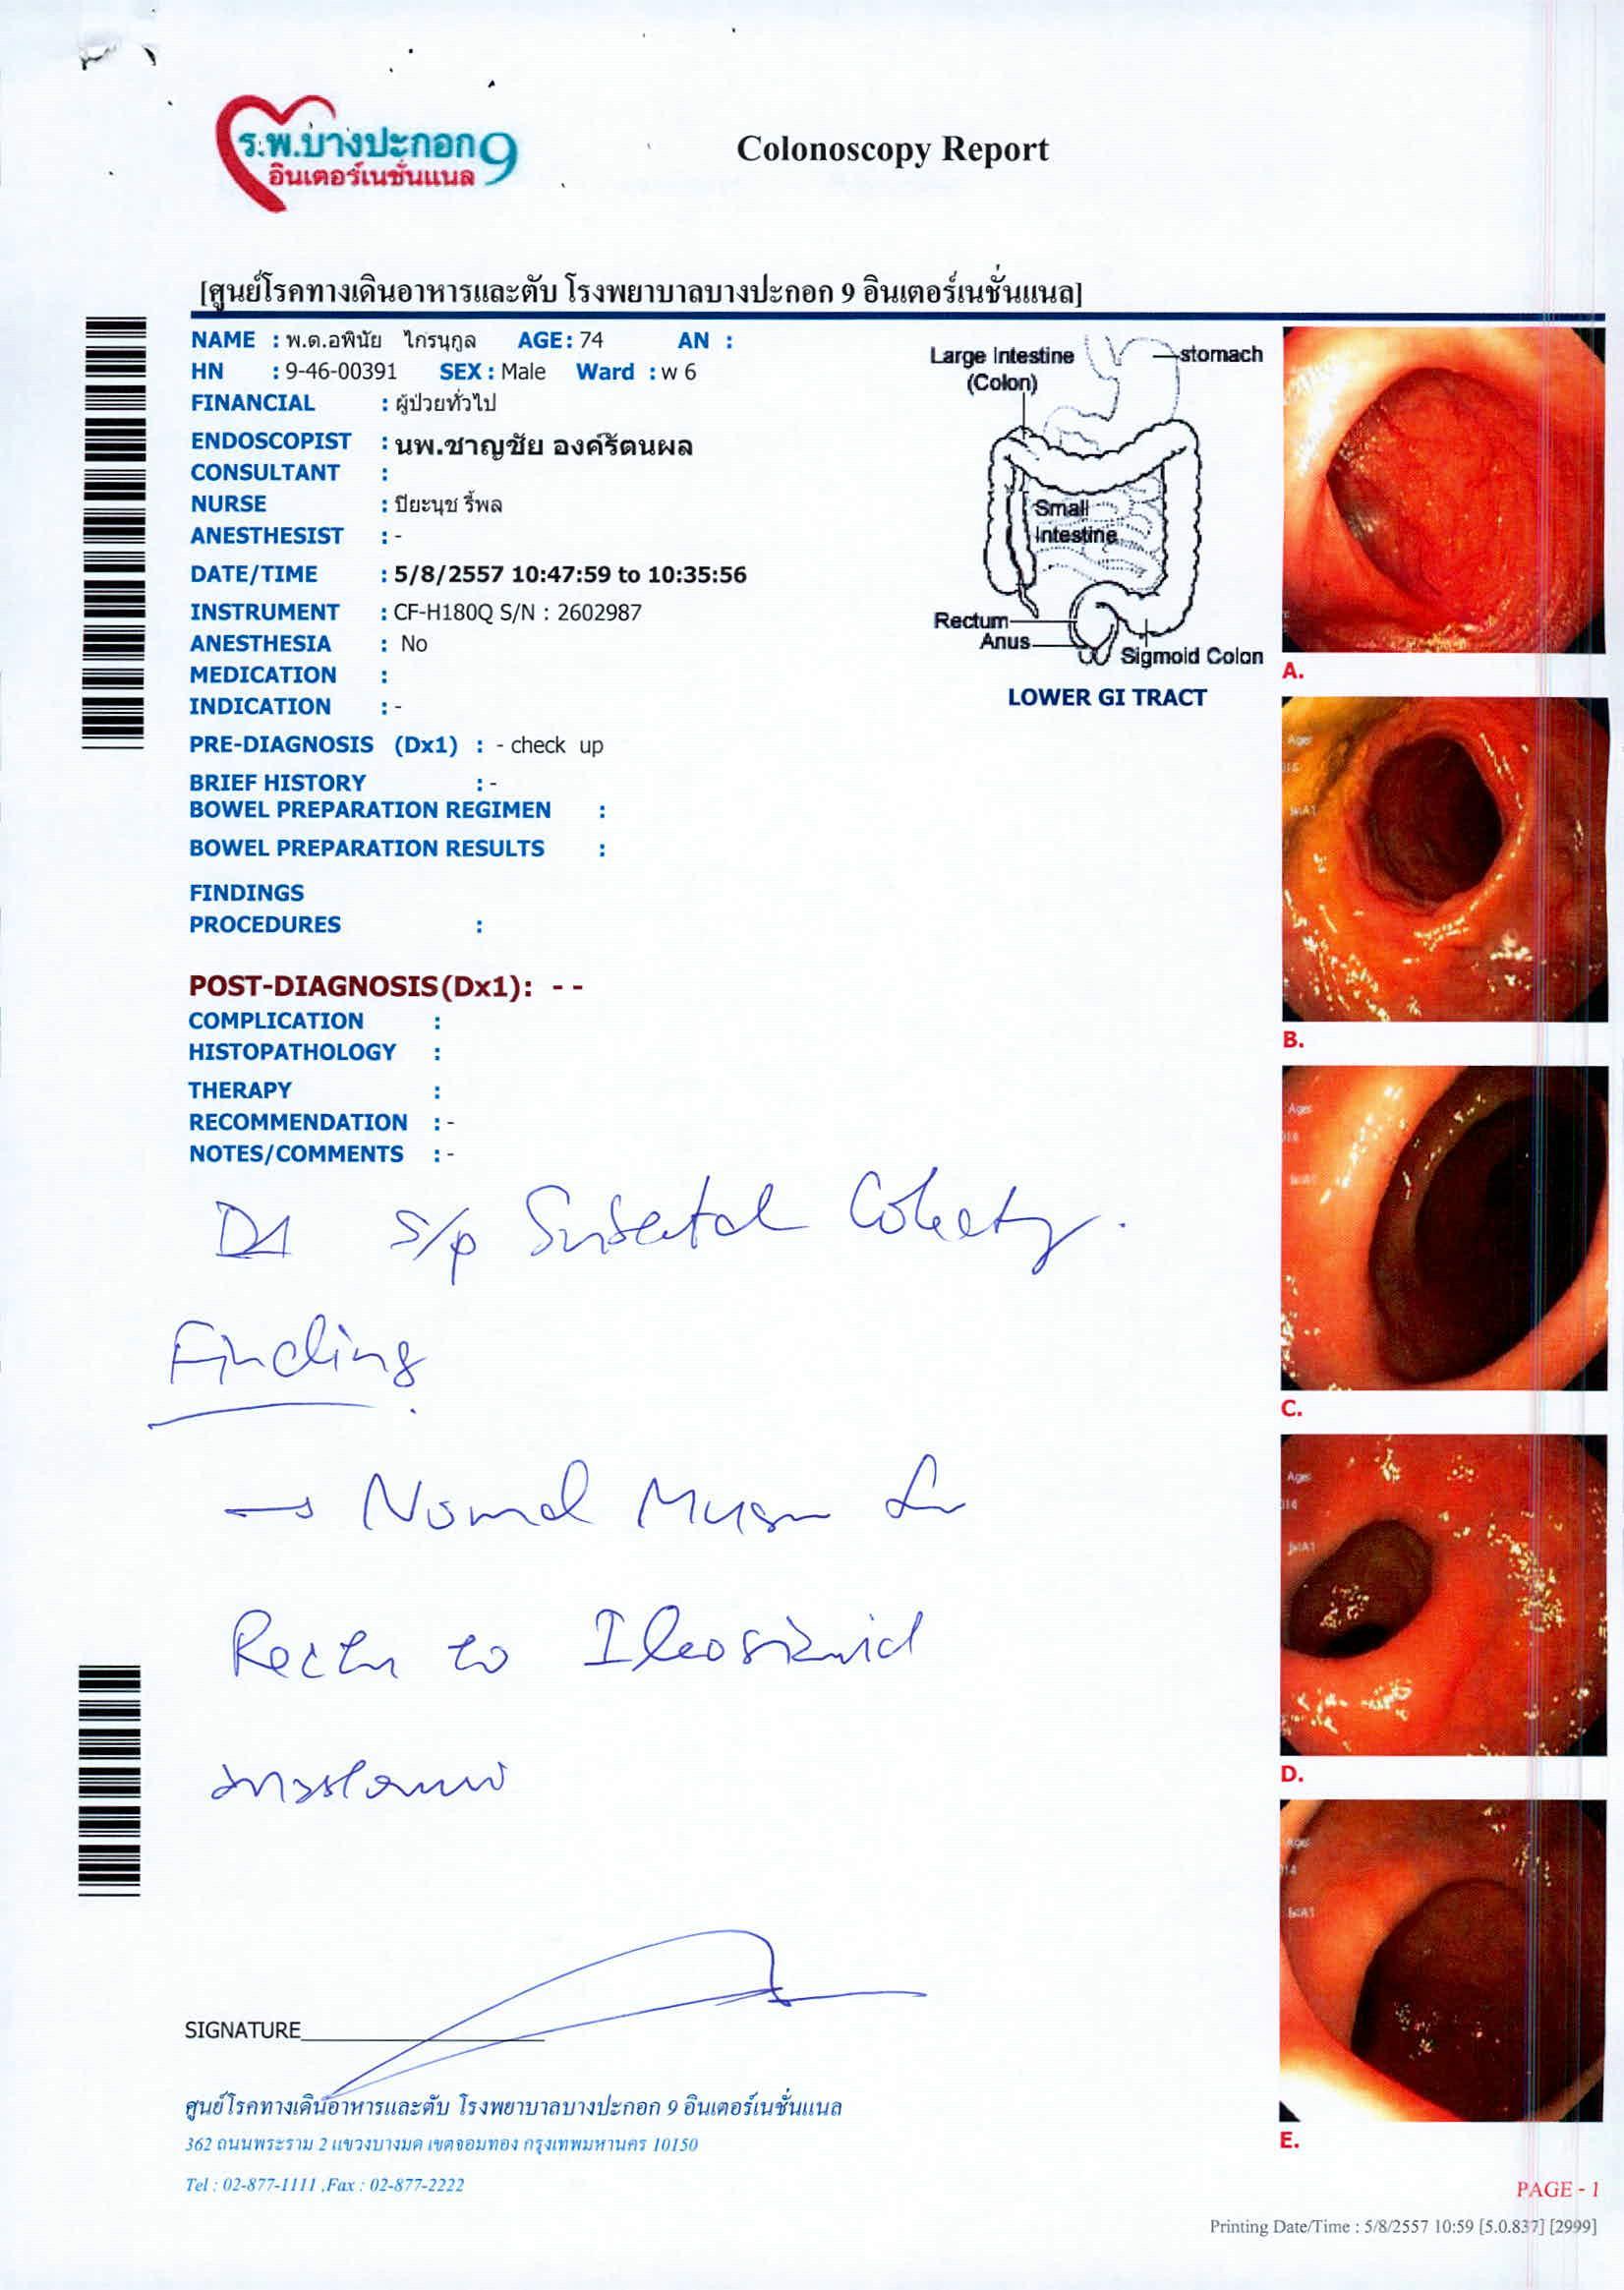 ร.พ.บางปะกอก 9
อินเตอร์เนชั่นแนล
Colonoscopy Report
[ศูนย์โรคทางเดินอาหารและตับ โรงพยาบาลบางปะกอก 9 อินเตอร์เนชั่นแนล]
NAME : พ.ต.อพินัย ไกรนุกูล AGE: 74 AN :
HN : 9-46-00391 SEX : Male Ward : w 6
FINANCIAL : ผู้ป่วยทั่วไป
ENDOSCOPIST : นพ.ชาญชัย องค์รัตนผล
CONSULTANT :
NURSE : ปิยะนุช รี้พล
ANESTHESIST : -
DATE/TIME : 5/8/2557 10:47:59 to 10:35:56
INSTRUMENT : CF-H180Q S/N : 2602987
ANESTHESIA : No
MEDICATION :
INDICATION : -
PRE-DIAGNOSIS (Dx1) : - check up
BRIEF HISTORY : -
BOWEL PREPARATION REGIMEN :
BOWEL PREPARATION RESULTS :
FINDINGS
PROCEDURES :
POST-DIAGNOSIS(Dx1): - -
COMPLICATION :
HISTOPATHOLOGY :
THERAPY :
RECOMMENDATION : -
NOTES/COMMENTS : -
Large Intestine
(Colon)
stomach
Small
Intestine
Rectum
Anus
Sigmoid Colon
LOWER GI TRACT
A.
B.
C.
D.
E.
s/p Subtotal
Finding
→ Normal
to
SIGNATURE
ศูนย์โรคทางเดินอาหารและตับ โรงพยาบาลบางปะกอก 9 อินเตอร์เนชั่นแนล
362 ถนนพระราม 2 แขวงบางมด เขตจอมทอง กรุงเทพมหานคร 10150
Tel : 02-877-1111 ,Fax : 02-877-2222
PAGE - 1
Printing Date/Time : 5/8/2557 10:59 [5.0.837] [2999]